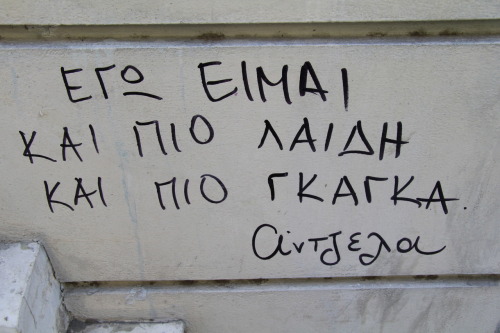 ΕΓΩ ΕΙΜΑΙ
ΚΑΙ ΠΙΟ ΛΑΙΔΗ
ΚΑΙ ΠΙΟ ΓΚΑΓΚΑ.
αντζελα